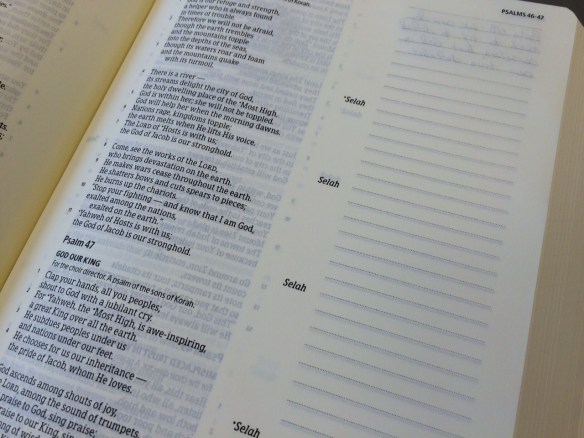 PSALMS 46-47
our refuge and strength,
a helper who is always found
in times of trouble.
Therefore we will not be afraid,
though the earth trembles
and the mountains topple
into the depths of the seas,
though its waters roar and foam
and the mountains quake
with its turmoil.
Selah
There is a river —
its streams delight the city of God,
the holy dwelling place of the Most High.
God is within her; she will not be toppled.
God will help her when the morning dawns.
Nations rage, kingdoms topple;
the earth melts when He lifts His voice.
The LORD of Hosts is with us;
the God of Jacob is our stronghold.
Selah
Come, see the works of the LORD,
who brings devastation on the earth.
He makes wars cease throughout the earth.
He shatters bows and cuts spears to pieces;
He burns up the chariots.
"Stop your fighting — and know that I am God,
exalted among the nations,
exalted on the earth."
Yahweh of Hosts is with us;
the God of Jacob is our stronghold.
Selah
Psalm 47
GOD OUR KING
For the choir director. A psalm of the sons of Korah.
Clap your hands, all you peoples;
shout to God with a jubilant cry.
For Yahweh, the Most High, is awe-inspiring,
a great King over all the earth.
He subdues peoples under us
and nations under our feet.
He chooses for us our inheritance —
the pride of Jacob, whom He loves.
Selah
God ascends among shouts of joy,
LORD, among the sound of trumpets.
praise to God, sing praise;
praise to our King, sing